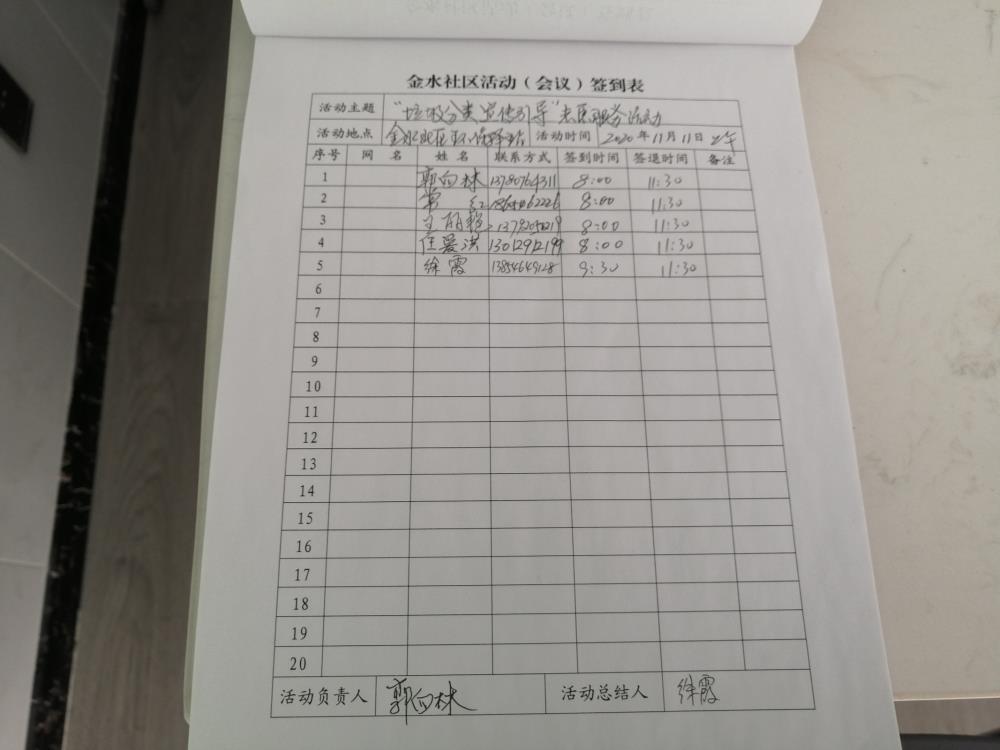 金水社区活动（会议）签到表
活动主题 "垃圾分类宣传引导"志愿服务活动
活动地点 金水社区环 活动时间 2020年11月11日上午
序号 网 名 姓 名 联系方式 签到时间 签退时间 备注
1 郭向林 13780764311 8:00 11:30
2 常红 8:00 11:30
3 王丽艳 8:00 11:30
4 任爱洪 13012912199 8:00 11:30
5 徐霞 13854649128 9:30 11:30
6
7
8
9
10
11
12
13
14
15
16
17
18
19
20
活动负责人 郭向林 活动总结人 徐霞